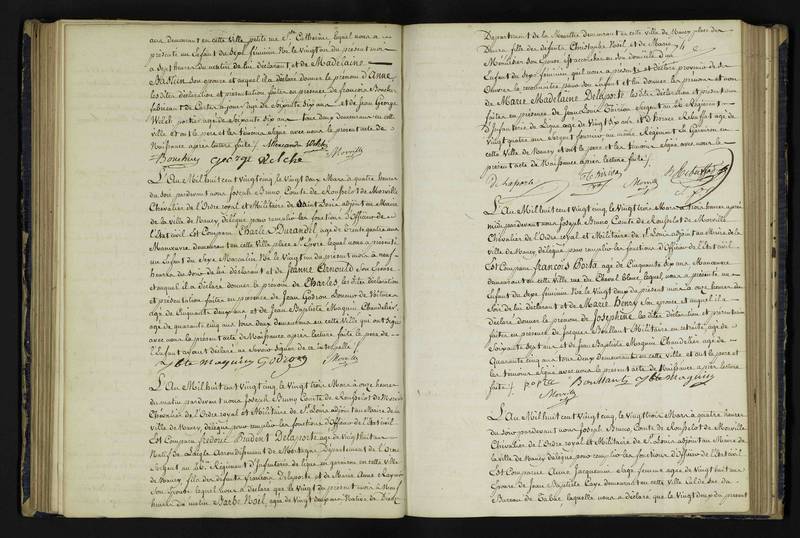 aux demeurant en cette Ville petite rue Ste Catherine, lequel nous a
présenté un Enfant du sexe féminin Né le vingt un du présent mois
à sept heures du matin de lui déclarant et de Madelaine
Bastien son épouse et auquel il a déclaré donner le prénom d'Anne,
les dites déclaration et présentation faites en présence de François Bouchy
fabricant de Cartes âgé de soixante dix ans et de jean George
Welch portier agé de soixante dix ans tous deux demeurant en cette
ville et ont le pere et les témoins signé avec nous le présent acte de
Naissance après lecture faite /. Alexandre
Bouchy george Welche Morville
L'An Mil huit cent vingt cinq, le vingt deux Mars à quatre heures
du soir pardevant nous Joseph Bruno Comte de Rousselot de Morville
Chevalier de l'Ordre royal et Militaire de Saint Louis adjoint au Maire
de la ville de Nancy délégué pour remplir les fonctions d'Officier de
l'Etat civil Est Comparu Charles Durandel, agé de trente quatre ans
Manœuvre demeurant en cette Ville place St Epvre lequel nous a présenté
un Enfant du sexe Masculin Né le vingt un du présent mois à neuf
heures du soir de lui déclarant et de Jeanne Arnould son Epouse
et auquel il a déclaré donner le prénom de Charles, les dites déclaration
et présentation faites en présence de Jean Godron Loueur de Voitures
agé de Cinquante deux ans et de Jean Baptiste Maquin Chandelier,
agé de quarante cinq ans tous deux demeurans en cette Ville qui ont Signé
avec nous le présent acte de Naissance après lecture faite le pere de
l'Enfant ayant déclaré ne savoir signer de ce interpellé /.
Jbte maquin Godron Morville
L'An Mil huit cent vingt cinq, le vingt trois Mars à onze heures
du matin pardevant nous Joseph Bruno Comte de Rousselot de Morville
Chevalier de l'Ordre royal et Militaire de St Louis adjoint au Maire de la
ville de Nancy, délégué pour remplir les fonctions d'Officier de l'Etat civil
Est Comparu frédéric Prudent Delaporte agé de vingt huit ans
Natif de L'aigle Arrondissement de Mortagne, Département de l'Orne
Sergent au 26e Régiment d'Infanterie de ligne en garnison en cette Ville
de Nancy fils des défunts François Delaporte et de Marie Anne
Son Epouse lequel nous a déclaré que le vingt deux du présent mois à
heures du matin Barbe Noel, agée de vingt deux ans Native de
Département de la Meurthe demeurant en cette ville de Nancy place
fille des defunts Christophe Noël et de Marie
son Epouse est accouchée en son domicile d'un
Enfant du sexe féminin qu'il nous a présenté et déclaré provenir de ses
Œuvres le reconnaître pour son Enfant et lui donner les prénoms et nom
de Marie Madelaine Delaporte les dites déclaration et présentation
faites en présence de Jean Louis Sergent au 26e Régiment
d'Infanterie de Ligne agé de vingt six ans et de agé de
Vingt quatre ans Sergent fourrier au même Régiment En Garnison en
cette Ville de Nancy et ont le pere et les témoins signé avec nous le
présent acte de Naissance après lecture faite /.
Delaporte Morville
L'An Mil huit cent vingt cinq, le vingt trois Mars à trois heures après
midi pardevant nous Joseph Bruno Comte de Rousselot de Morville
Chevalier de l'Ordre royal et Militaire de St Louis adjoint au Maire de la
ville de Nancy, délégué pour remplir les fonctions d'Officier de l'Etat civil
Est Comparu François Porta agé de Cinquante six ans Manœuvre
demeurant en cette Ville rue du Cheval blanc lequel nous a présenté un
Enfant du sexe féminin Né le vingt deux du présent mois à onze heures du
Soir de lui déclarant et de Marie Henry son épouse et auquel il a
déclaré donner le prénom de Joséphine les dites déclaration et présentation
faites en présence de Jacques Militaire en retraite agé de
Soixante sept ans et de Jean Baptiste Maquin Chandelier agé de
Quarante cinq ans tous deux demeurant en cette Ville et ont le pere et
les témoins signé avec nous le présent acte de Naissance après lecture
faite /. porta Jbte maquin
Morville
L'An Mil huit cent vingt cinq, le vingt trois Mars à quatre heures
du soir pardevant nous Joseph Bruno Comte de Rousselot de Morville
Chevalier de l'Ordre royal et Militaire de St Louis adjoint au Maire de
la ville de Nancy délégué pour remplir les fonctions d'Officier de l'Etat civil
Est Comparue Anne Jacquemin Sage femme agée de vingt huit ans
Epouse de Jean Baptiste demeurant en cette Ville
Bureau de Tabac, laquelle nous a déclaré que le vingt deux du présent